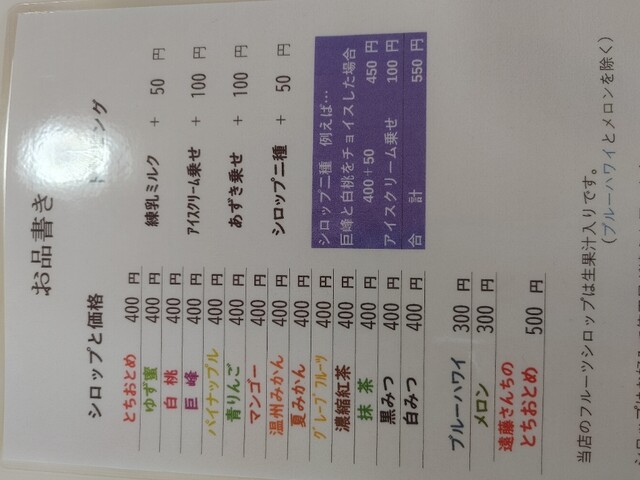 お品書き
シロップと価格
とちおとめ 400 円
ゆず蜜 400 円
白桃 400 円
巨峰 400 円
パイナップル 400 円
青りんご 400 円
マンゴー 400 円
温州みかん 400 円
夏みかん 400 円
グレープフルーツ 400 円
濃縮紅茶 400 円
抹茶 400 円
黒みつ 400 円
白みつ 400 円
ブルーハワイ 300 円
メロン 300 円
遠藤さんちの
とちおとめ 500 円
練乳ミルク + 50 円
アイスクリーム乗せ + 100 円
あずき乗せ + 100 円
シロップ二種 + 50 円
シロップ二種 例えば…
巨峰と白桃をチョイスした場合
400+50 450 円
アイスクリーム乗せ 100 円
合計 550 円
当店のフルーツシロップは生果汁入りです。
(ブルーハワイとメロンを除く)